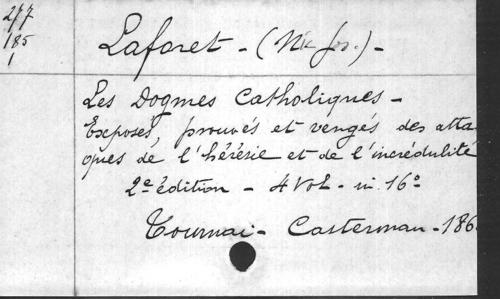 277
185
1
Laforet - (Nic. Jos.) -
Les Dogmes Catholiques -
Exposés, prouvés et vengés des atta
ques de l'hérésie et de l'incrédulité
2e édition - 4 Vol - in 16°
Tournai - Casterman - 186